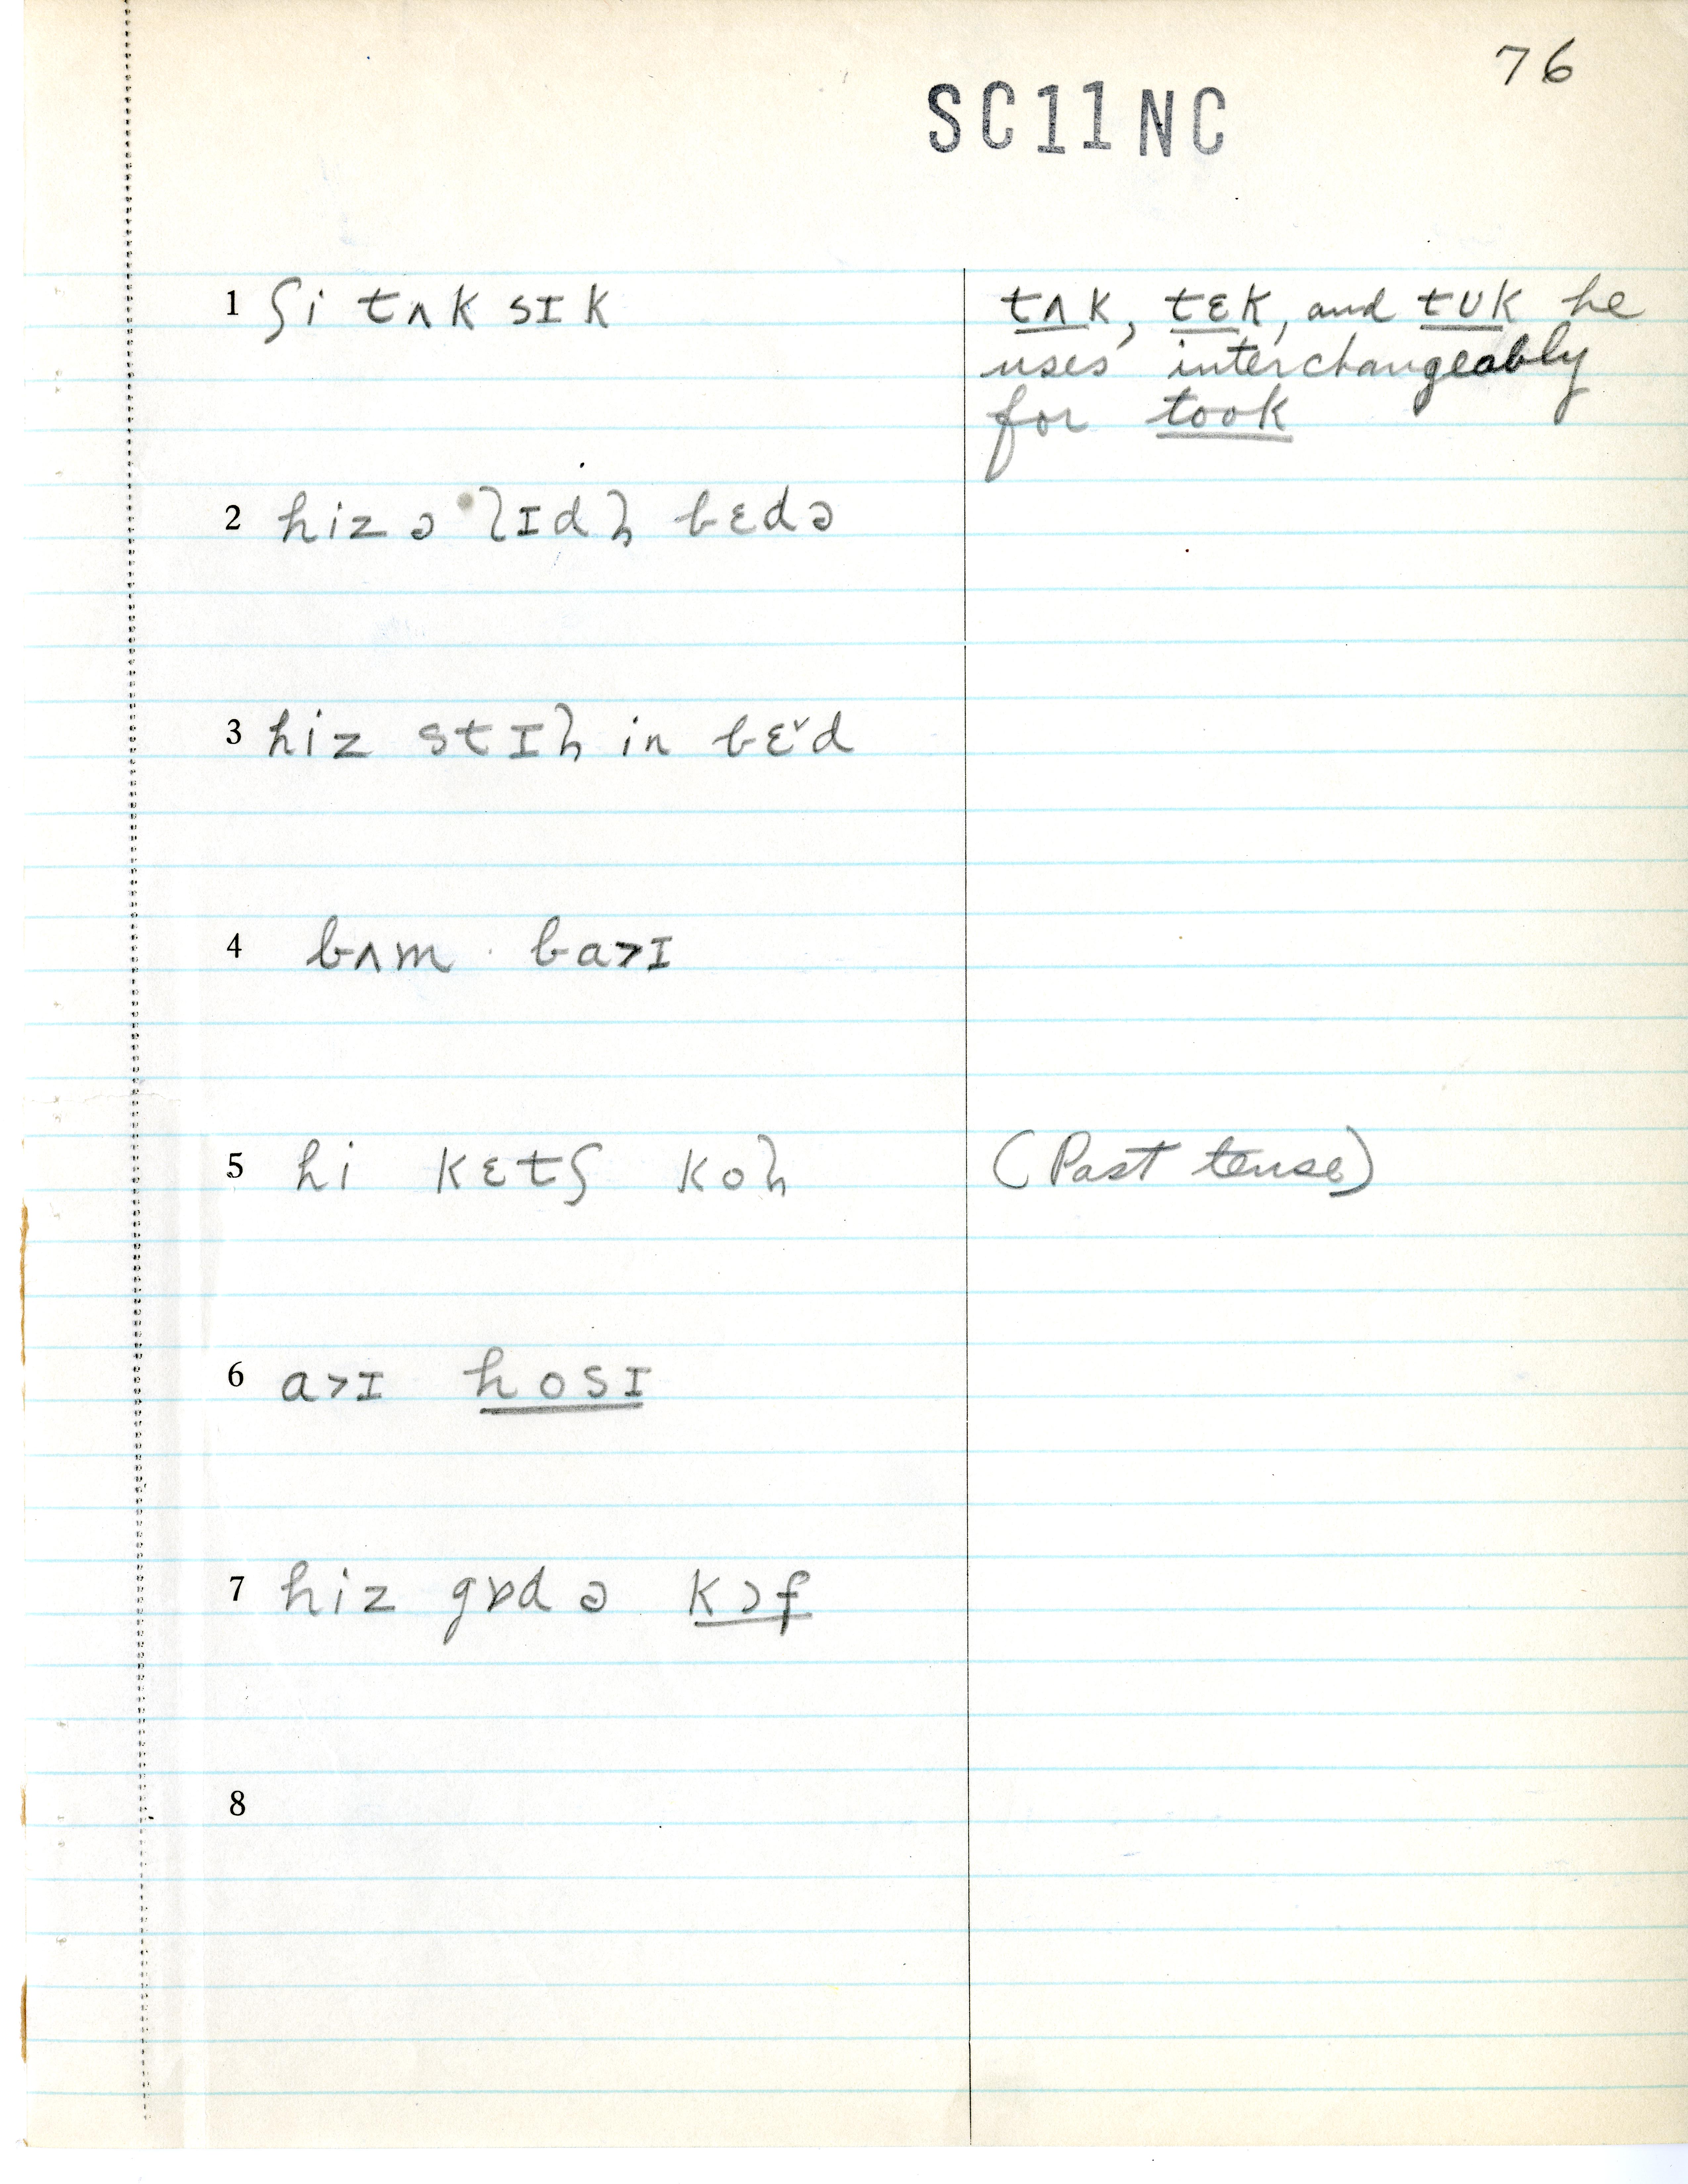 76
SC11NC
1 ʃi tʌk sɪk tʌk, tɛk, and tʊk he
uses interchangeably
for took
2 hiz ə ʅɪdḥ bɛdə
3 hiz stɪɦ in bɛ˅d
4 bʌm ba>ɪ
5 hi kɛtʃ koɦ (Past tense)
6 a>ɪ hosɪ
7 hiz gɒd ə kɔf
8